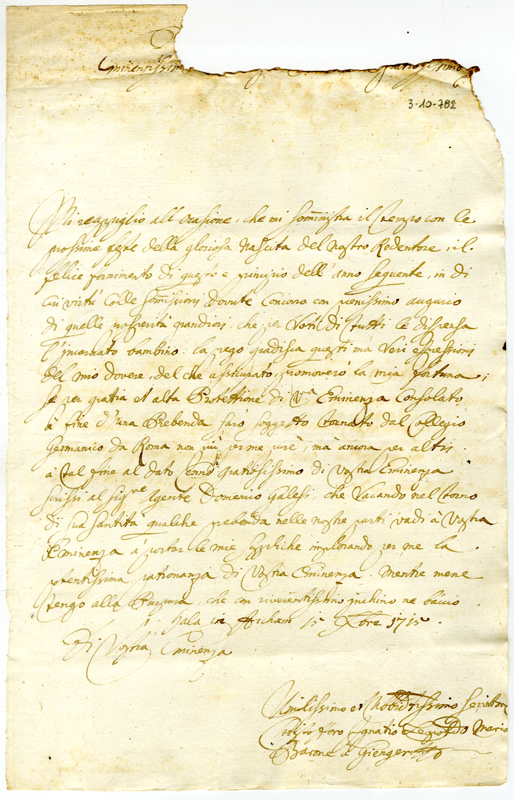 Eminentissim
3-10-782
Mi reapuglio all'ocasione, che mi somministra il tempo con le
prossime feste della gloriosa nascita del Nostro Redentore, il
felice fornimento di questo e principio dell'anno seguente, in di
cui virtù colle somissioni dovute Concoro con pienissimo augurio
di quelle prosperità grandiori, che per Voti di tutti le dispensa
l'incarnato bambino. la prego gradisca questi mà Veri espressioni
del mio dovere, del che assicurato, promovero la mia fortuna;
se per gratia et alta Protettione di Vra Eminenza Consolato
à fine d'una Prebenda sarò soggetto tornato dal Collegio
Germanico da Roma non più per me, mà ancora per altri.
à tal fine al dato Cenno gratiosissimo di Vostra Eminenza
scrissi al sigre Agente Domenico Galesi, che Vacando nel torno
di sua santità qualche prebenda nelle nostre parti vadi à Vostra
Eminenza à portar le mie suppliche implorando per me la
potentissima patronanza di Vostra Eminenza. Mentre mene
tengo alla Purpura che con riverentissimo inchino ne bacio.
Gala in Aicham 15 Xbre 1715
Di Vostra Eminenza
Umilissimo et Servitore
Ignatio Leopoldo Maria
Barone de Gienger